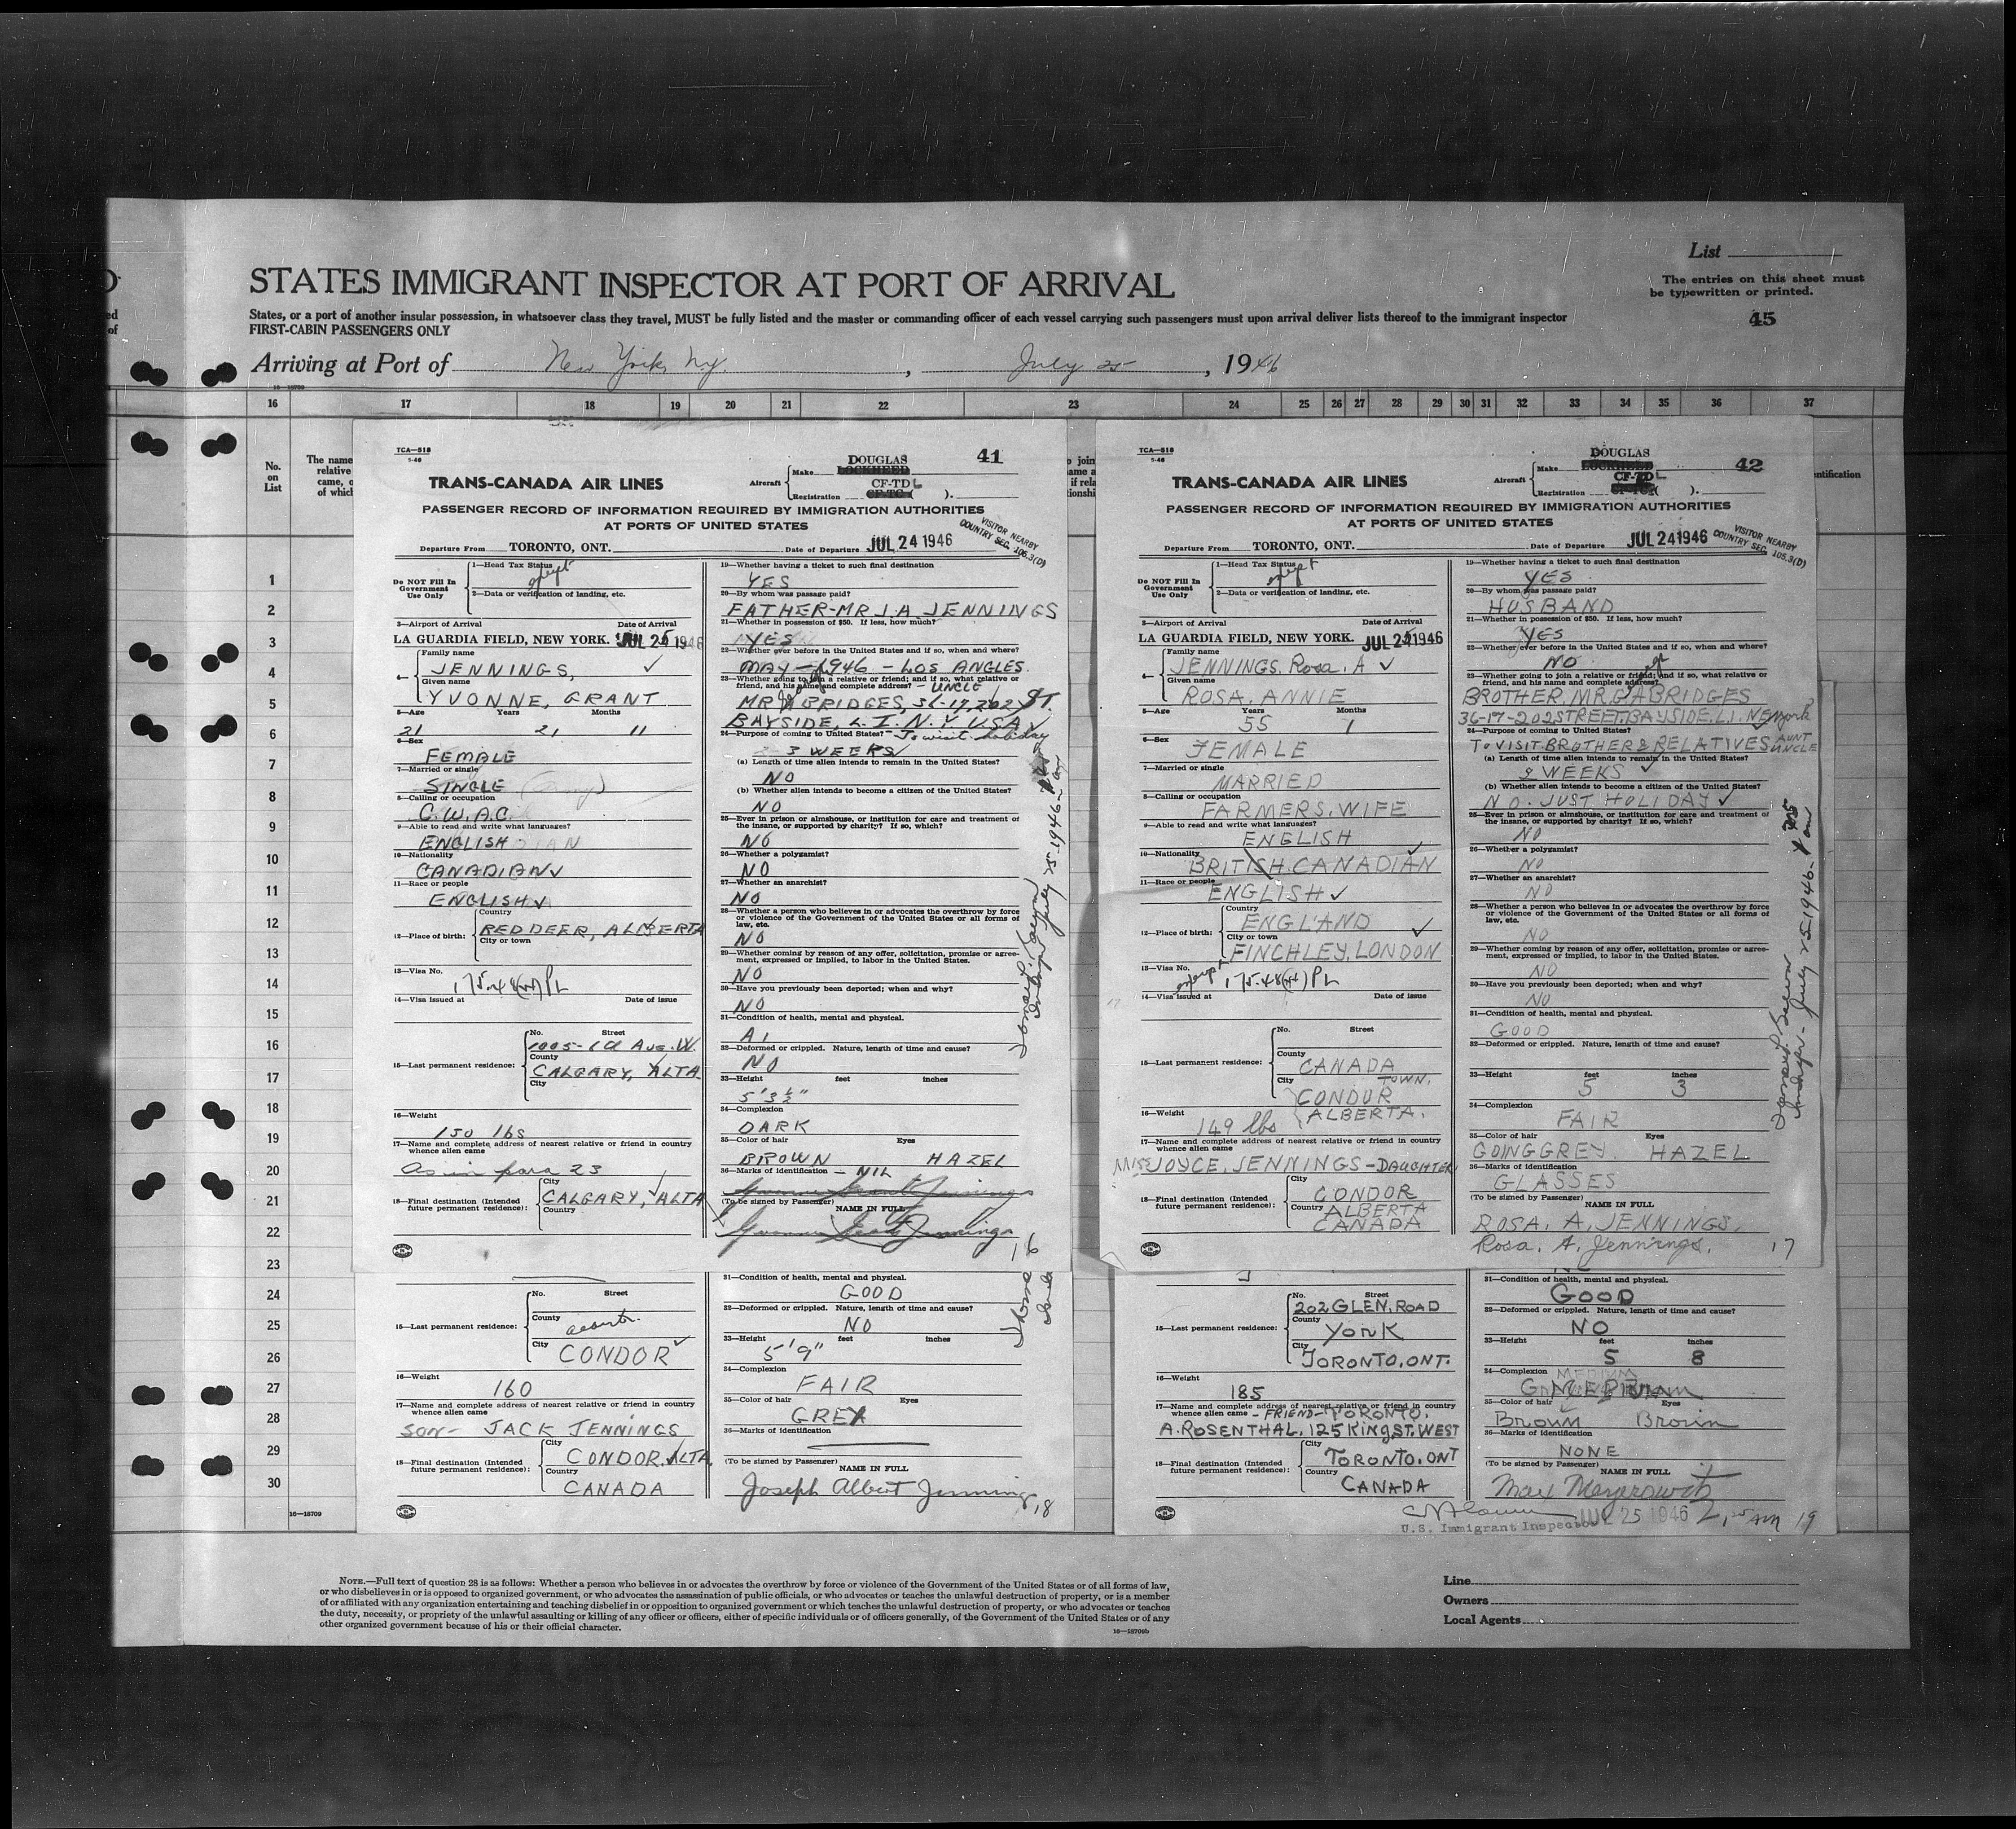 List
STATES IMMIGRANT INSPECTOR AT PORT OF ARRIVAL
The entries on this sheet must
be typewritten or printed.
States, or a port of another insular possession, in whatsoever class they travel, MUST be fully listed and the master or commanding officer of each vessel carrying such passengers must upon arrival deliver lists thereof to the immigrant inspector
FIRST-CABIN PASSENGERS ONLY
45
Arriving at Port of New York, N.Y. , July 25 , 1946
16-18709
16 17 18 19 20 21 22 23 24 25 26 27 28 29 30 31 32 33 34 35 36 37
No.
on
List
The name
relative
came, o
of which
1
2
3
4
5
6
7
8
9
10
11
12
13
14
15
16
17
18
19
20
21
22
23
24
25
26
27
28
29
30
16-18709
TCA-818
5-46
41
TRANS-CANADA AIR LINES
Aircraft Make DOUGLAS LOCKHEED
Registration CF-TDL CF-TC( ).
PASSENGER RECORD OF INFORMATION REQUIRED BY IMMIGRATION AUTHORITIES
AT PORTS OF UNITED STATES
VISITOR NEARBY
COUNTRY SEC. 105.3(D)
Departure From TORONTO, ONT. Date of Departure JUL 24 1946
Do NOT Fill In
Government
Use Only
1-Head Tax Status
exempt
2-Data or verification of landing, etc.
3-Airport of Arrival Date of Arrival
LA GUARDIA FIELD, NEW YORK. JUL 25 1946
4- Family name
JENNINGS, ✓
Given name
YVONNE, GRANT
5-Age Years Months
21 21 11
6-Sex
FEMALE
7-Married or single
SINGLE
8-Calling or occupation
C.W.A.C.
9-Able to read and write what languages?
ENGLISH
10-Nationality
CANADIAN ✓
11-Race or people
ENGLISH ✓
12-Place of birth: Country
RED DEER, ALBERTA
City or town
13-Visa No.
175.48 PL
14-Visa issued at Date of issue
15-Last permanent residence: No. Street
1005-1st AVE. W.
County
CALGARY, ALTA.
City
16-Weight
150 lbs
17-Name and complete address of nearest relative or friend in country
whence alien came
As in para 23
18-Final destination (Intended
future permanent residence): City
CALGARY, ALTA
Country
19-Whether having a ticket to such final destination
YES
20-By whom was passage paid?
FATHER-MR J.A. JENNINGS
21-Whether in possession of $50. If less, how much?
YES
22-Whether ever before in the United States and if so, when and where?
MAY-1946-LOS ANGLES.
23-Whether going to join a relative or friend; and if so, what relative or
friend, and his name and complete address? - UNCLE
MR BRIDGES, 36-17, 202 ST.
BAYSIDE, L.I. N.Y. USA ✓
24-Purpose of coming to United States? - To visit holiday
3 WEEKS
(a) Length of time alien intends to remain in the United States?
NO
(b) Whether alien intends to become a citizen of the United States?
NO
25-Ever in prison or almshouse, or institution for care and treatment of
the insane, or supported by charity? If so, which?
NO
26-Whether a polygamist?
NO
27-Whether an anarchist?
NO
28-Whether a person who believes in or advocates the overthrow by force
or violence of the Government of the United States or all forms of
law, etc.
NO
29-Whether coming by reason of any offer, solicitation, promise or agree-
ment, expressed or implied, to labor in the United States.
NO
30-Have you previously been deported; when and why?
NO
31-Condition of health, mental and physical.
A1
32-Deformed or crippled. Nature, length of time and cause?
NO
33-Height feet inches
5'3½"
34-Complexion
DARK
35-Color of hair Eyes
BROWN HAZEL
36-Marks of identification - NIL
(To be signed by Passenger)
NAME IN FULL
Yvonne Grant Jennings
16
July 25-1946
TCA-818
5-46
42
TRANS-CANADA AIR LINES
Aircraft Make DOUGLAS LOCKHEED
Registration CF-TDL ( ).
PASSENGER RECORD OF INFORMATION REQUIRED BY IMMIGRATION AUTHORITIES
AT PORTS OF UNITED STATES
VISITOR NEARBY
COUNTRY SEC. 105.3(D)
Departure From TORONTO, ONT. Date of Departure JUL 24 1946
Do NOT Fill In
Government
Use Only
1-Head Tax Status
exempt
2-Data or verification of landing, etc.
3-Airport of Arrival Date of Arrival
LA GUARDIA FIELD, NEW YORK. JUL 1946
4- Family name
JENNINGS. Rosa. A ✓
Given name
ROSA, ANNIE
5-Age Years Months
55 1
6-Sex
FEMALE
7-Married or single
MARRIED
8-Calling or occupation
FARMERS. WIFE
9-Able to read and write what languages?
ENGLISH
10-Nationality
BRITISH. CANADIAN
11-Race or people
ENGLISH ✓
12-Place of birth: Country
ENGLAND
City or town
FINCHLEY, LONDON
13-Visa No.
exempt 175.48 PL
14-Visa issued at Date of issue
15-Last permanent residence: No. Street
County
CANADA
City TOWN.
CONDOR
ALBERTA.
16-Weight
149 lbs
17-Name and complete address of nearest relative or friend in country
whence alien came
MISS JOYCE. JENNINGS-DAUGHTER
18-Final destination (Intended
future permanent residence): City
CONDOR
Country ALBERTA
CANADA
19-Whether having a ticket to such final destination
YES
20-By whom was passage paid?
HUSBAND
21-Whether in possession of $50. If less, how much?
YES
22-Whether ever before in the United States and if so, when and where?
NO
23-Whether going to join a relative or friend; and if so, what relative or
friend, and his name and complete address?
BROTHER. MR. G A BRIDGES
36-17-202 STREET. BAYSIDE. L.I. New York
24-Purpose of coming to United States?
To VISIT BROTHER & RELATIVES AUNT UNCLE
(a) Length of time alien intends to remain in the United States?
3 WEEKS ✓
(b) Whether alien intends to become a citizen of the United States?
NO. JUST HOLIDAY ✓
25-Ever in prison or almshouse, or institution for care and treatment of
the insane, or supported by charity? If so, which?
NO
26-Whether a polygamist?
NO
27-Whether an anarchist?
NO
28-Whether a person who believes in or advocates the overthrow by force
or violence of the Government of the United States or all forms of
law, etc.
NO
29-Whether coming by reason of any offer, solicitation, promise or agree-
ment, expressed or implied, to labor in the United States.
NO
30-Have you previously been deported; when and why?
NO
31-Condition of health, mental and physical.
GOOD
32-Deformed or crippled. Nature, length of time and cause?
33-Height feet inches
5 3
34-Complexion
FAIR
35-Color of hair Eyes
GOING GREY. HAZEL
36-Marks of identification
GLASSES
(To be signed by Passenger)
NAME IN FULL
ROSA. A. JENNINGS.
Rosa. A. Jennings.
17
July 25-1946
15-Last permanent residence: No. Street
County
Alberta.
City
CONDOR ✓
16-Weight
160
17-Name and complete address of nearest relative or friend in country
whence alien came
SON- JACK JENNINGS
18-Final destination (Intended
future permanent residence): City
CONDOR. ALTA.
Country
CANADA
31-Condition of health, mental and physical.
GOOD
32-Deformed or crippled. Nature, length of time and cause?
NO
33-Height feet inches
5'9"
34-Complexion
FAIR
35-Color of hair Eyes
GREY
36-Marks of identification
(To be signed by Passenger)
NAME IN FULL
Joseph Albert Jennings
18
15-Last permanent residence: No. Street
202 GLEN. ROAD
County
YORK
City
TORONTO, ONT.
16-Weight
185
17-Name and complete address of nearest relative or friend in country
whence alien came - FRIEND-TORONTO.
A. ROSENTHAL, 125 KING ST. WEST
18-Final destination (Intended
future permanent residence): City
TORONTO. ONT
Country
CANADA
31-Condition of health, mental and physical.
GOOD
32-Deformed or crippled. Nature, length of time and cause?
NO
33-Height feet inches
5 8
34-Complexion
35-Color of hair Eyes
Brown Brown
36-Marks of identification
NONE
(To be signed by Passenger)
NAME IN FULL
Max Meyerowitz
U.S. Immigrant Inspector JUL 25 1946
19
NOTE.—Full text of question 28 is as follows: Whether a person who believes in or advocates the overthrow by force or violence of the Government of the United States or of all forms of law,
or who disbelieves in or is opposed to organized government, or who advocates the assassination of public officials, or who advocates or teaches the unlawful destruction of property, or is a member
of or affiliated with any organization entertaining and teaching disbelief in or opposition to organized government or which teaches the unlawful destruction of property, or who advocates or teaches
the duty, necessity, or propriety of the unlawful assaulting or killing of any officer or officers, either of specific individuals or of officers generally, of the Government of the United States or of any
other organized government because of his or their official character.
16-18709b
Line
Owners
Local Agents